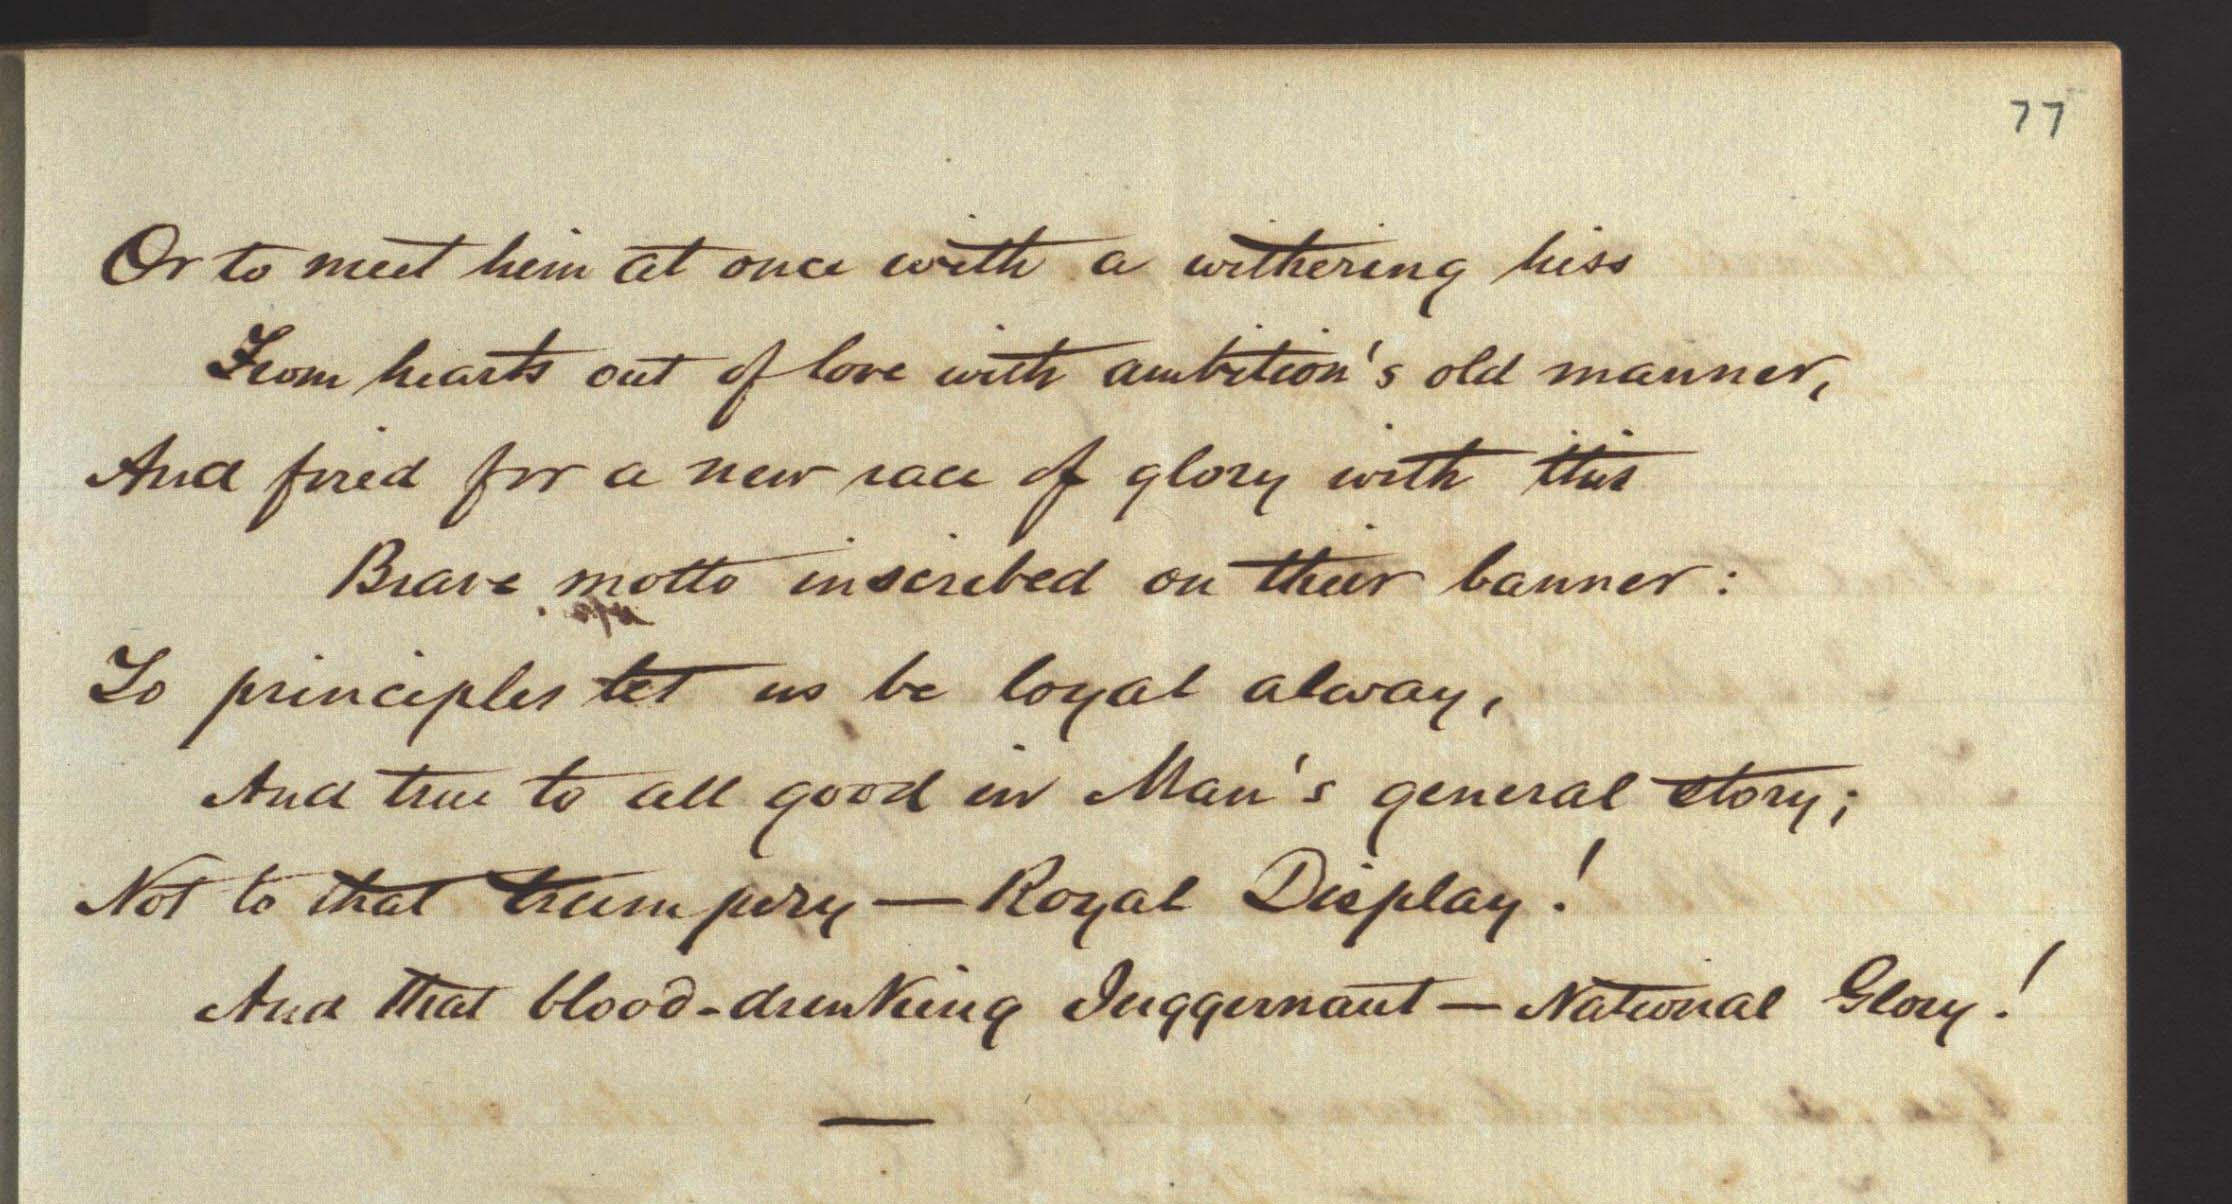 77
Or to meet him at once with a withering hiss
From hearts out of love with ambition's old manner,
And fired for a new race of glory with this
Brave motto inscribed on their banner:
To principles let us be loyal alway,
And true to all good in Man's general story;
Not to that trumpery — Royal Display!
And that blood-drinking Juggernaut — National Glory!